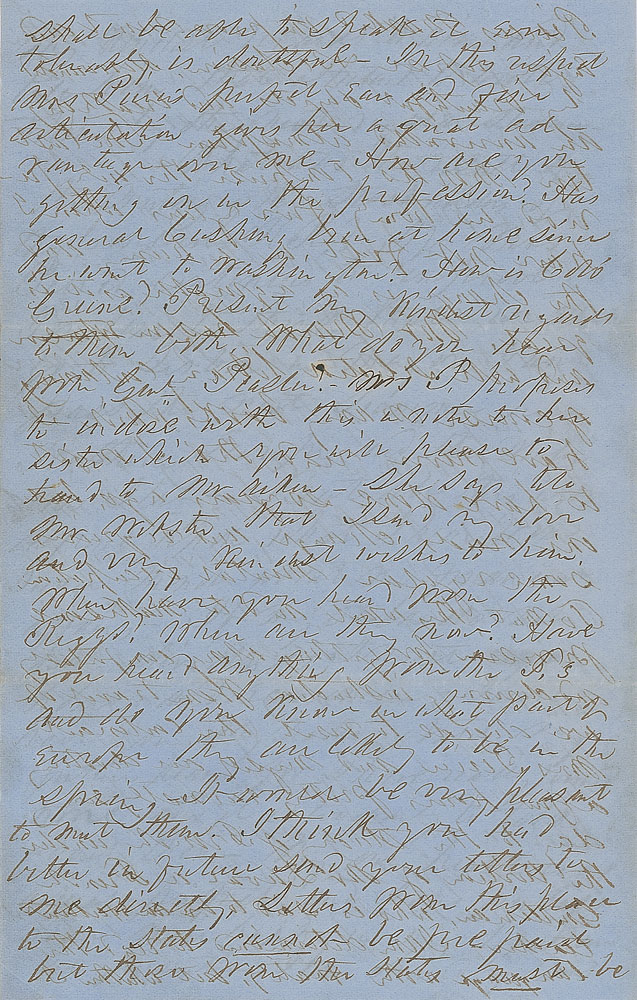 shall be able to speak it even
tolerably, is doubtful – In this respect
Mrs Pierce's perfect ear and fine
articulation gives her a great ad-
vantage over me – How are you
getting on in the profession? Has
General Cushing been at home since
he went to Washington? – How is Colo
Greene? Present my kindest regards
to them both. What do you hear
from Genl Peaslee? – Mrs P. proposes
to inclose with this a note to her
sister which you will please to
hand to Mr Aiken – She says tell
Mr Webster that I send my love
and very kindest wishes to him.
When have you heard from the
Riggs? Where are they now? Have
you heard anything from the P.s
and do you know in what part of
Europe they are likely to be in the
spring – It would be very pleasant
to meet them. I think you had
better in future send your letters to
me directly. Letters from this place
to the States cannot be pre paid
but those from the States must be